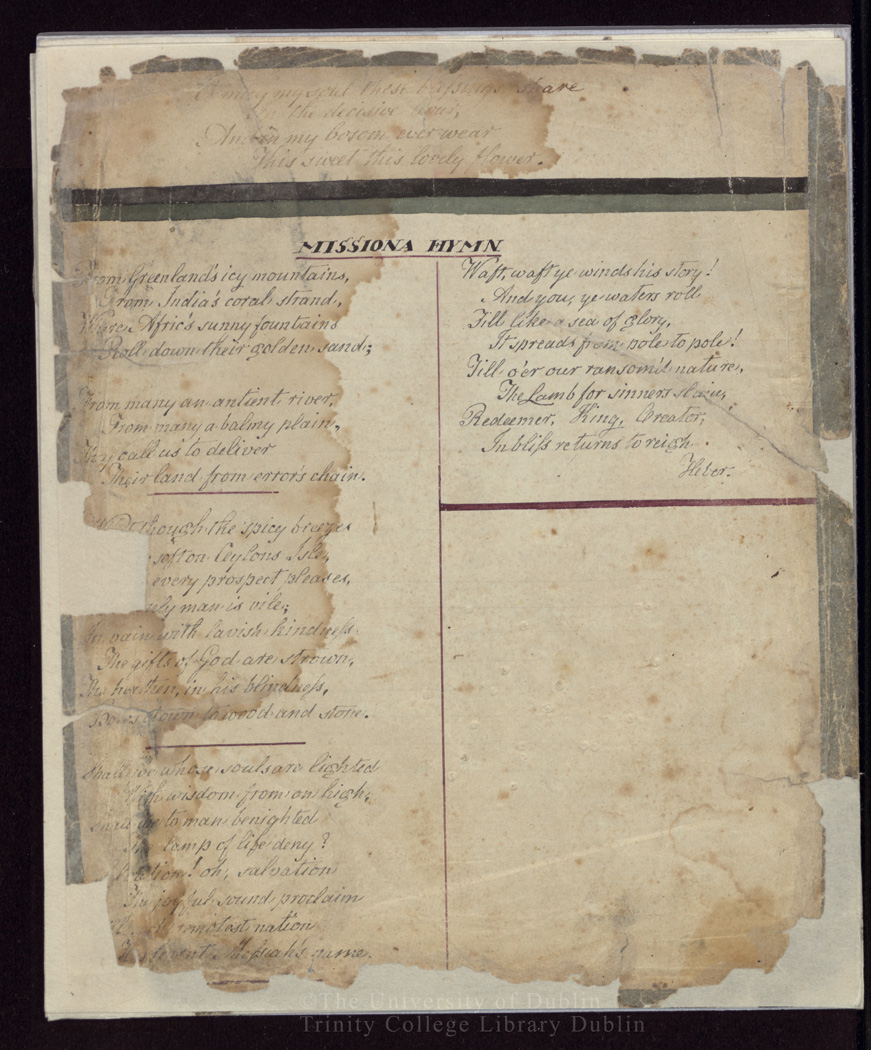 O may my soul these blessings share
the decisive hour,
And in my bosom ever wear
This sweet this lovely flower.
MISSIONA HYMN
From Greenland's icy mountains,
From India's coral strand,
Where Afric's sunny fountains
Roll down their golden sand;
From many an antient river,
From many a balmy plain,
They call us to deliver
Their land from error's chain.
though the spicy breezes
soft on Ceylons Isle,
every prospect pleases,
nly man is vile;
In vain with lavish kindness
The gifts of God are strown,
The heathen, in his blindness,
Bows down to wood and stone.
Shall we whose souls are lighted
With wisdom from on high,
to man benighted
The lamp of life deny?
ation! oh, salvation
The joyful sound proclaim
remotest nation
learnt Messiah's name.
Waft, waft ye winds his story!
And you, ye waters roll
Till like a sea of glory,
It spreads from pole to pole!
Till o'er our ransom'd nature,
The Lamb for sinners slain,
Redeemer, King, Creator,
In bliss returns to reign.
Heber.
©The University of Dublin
Trinity College Library Dublin